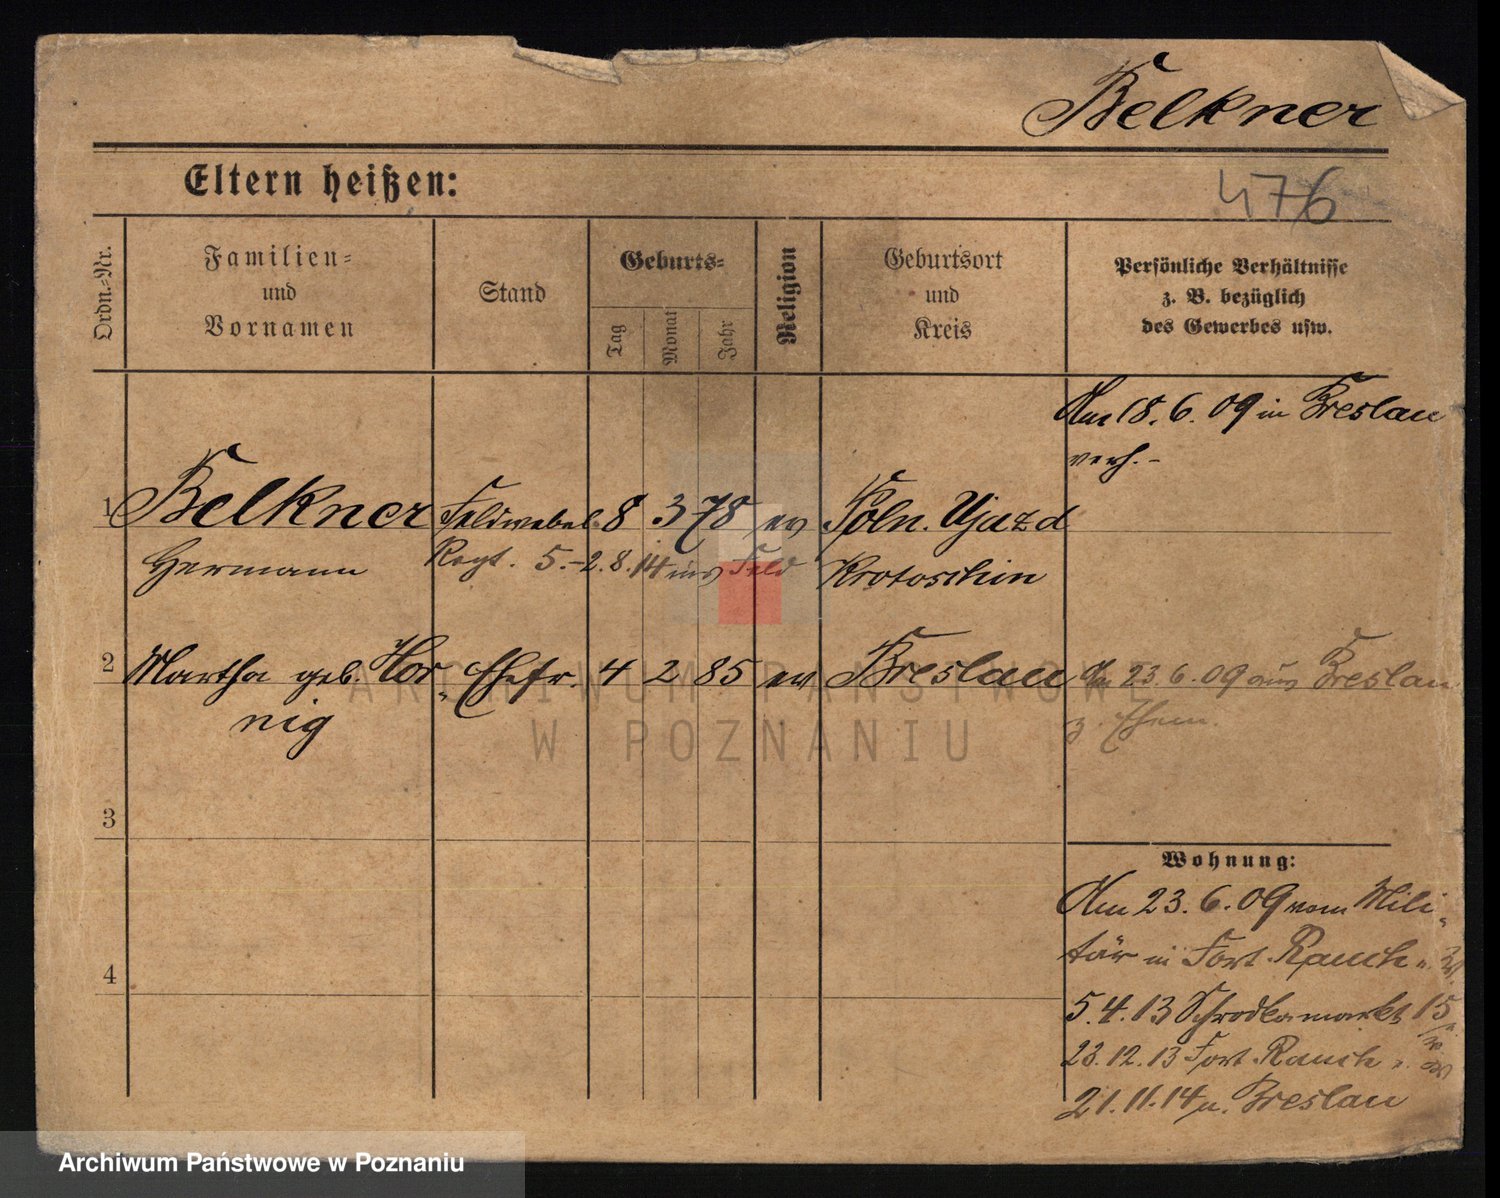 Belkner
Eltern heißen:
476
Ordn.-Nr.
Familien-
und
Vornamen
Stand
Geburts-
Tag
Monat
Jahr
Religion
Geburtsort
und
Kreis
Persönliche Verhältnisse
z. B. bezüglich
des Gewerbes usw.
Am 18.6.09 in Breslau
verh.-
1 Belkner Feldwebel 8 3 78 ev Poln. Ujazd
Hermann Regt. 5.-2.8.14 ins Feld Krotoschin
2 Martha geb. Hor- Ehefr. 4 2 85 ev Breslau Am 23.6.09 aus Breslau
nig z. Ehem.
3
Wohnung:
Am 23.6.09 vom Mili-
tär in Fort Rauch
4
5.4.13 Schrodkamarkt 15
23.12.13 Fort Rauch
21.11.14 n. Breslau
ARCHIWUM PAŃSTWOWE
W POZNANIU
Archiwum Państwowe w Poznaniu